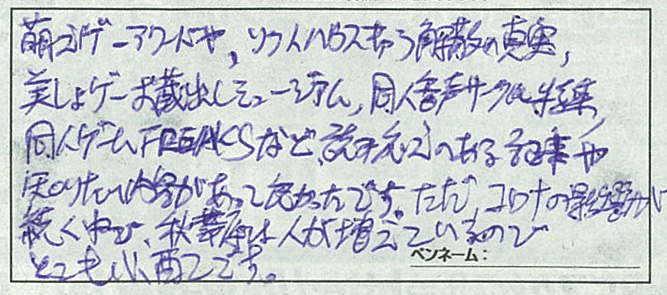 萌えゲーアワードや、ソフトハウスキャラ解散の真実、
美しょゲーお蔵出しミュージアム、同人音声サークル特集、
同人ゲームFREAKSなど、読み応えのある記事や
知りたい内容があって良かったです。ただ、コロナの影響が
続く中で、秋葉原は人が増えているので
とても心配です。
ペンネーム：